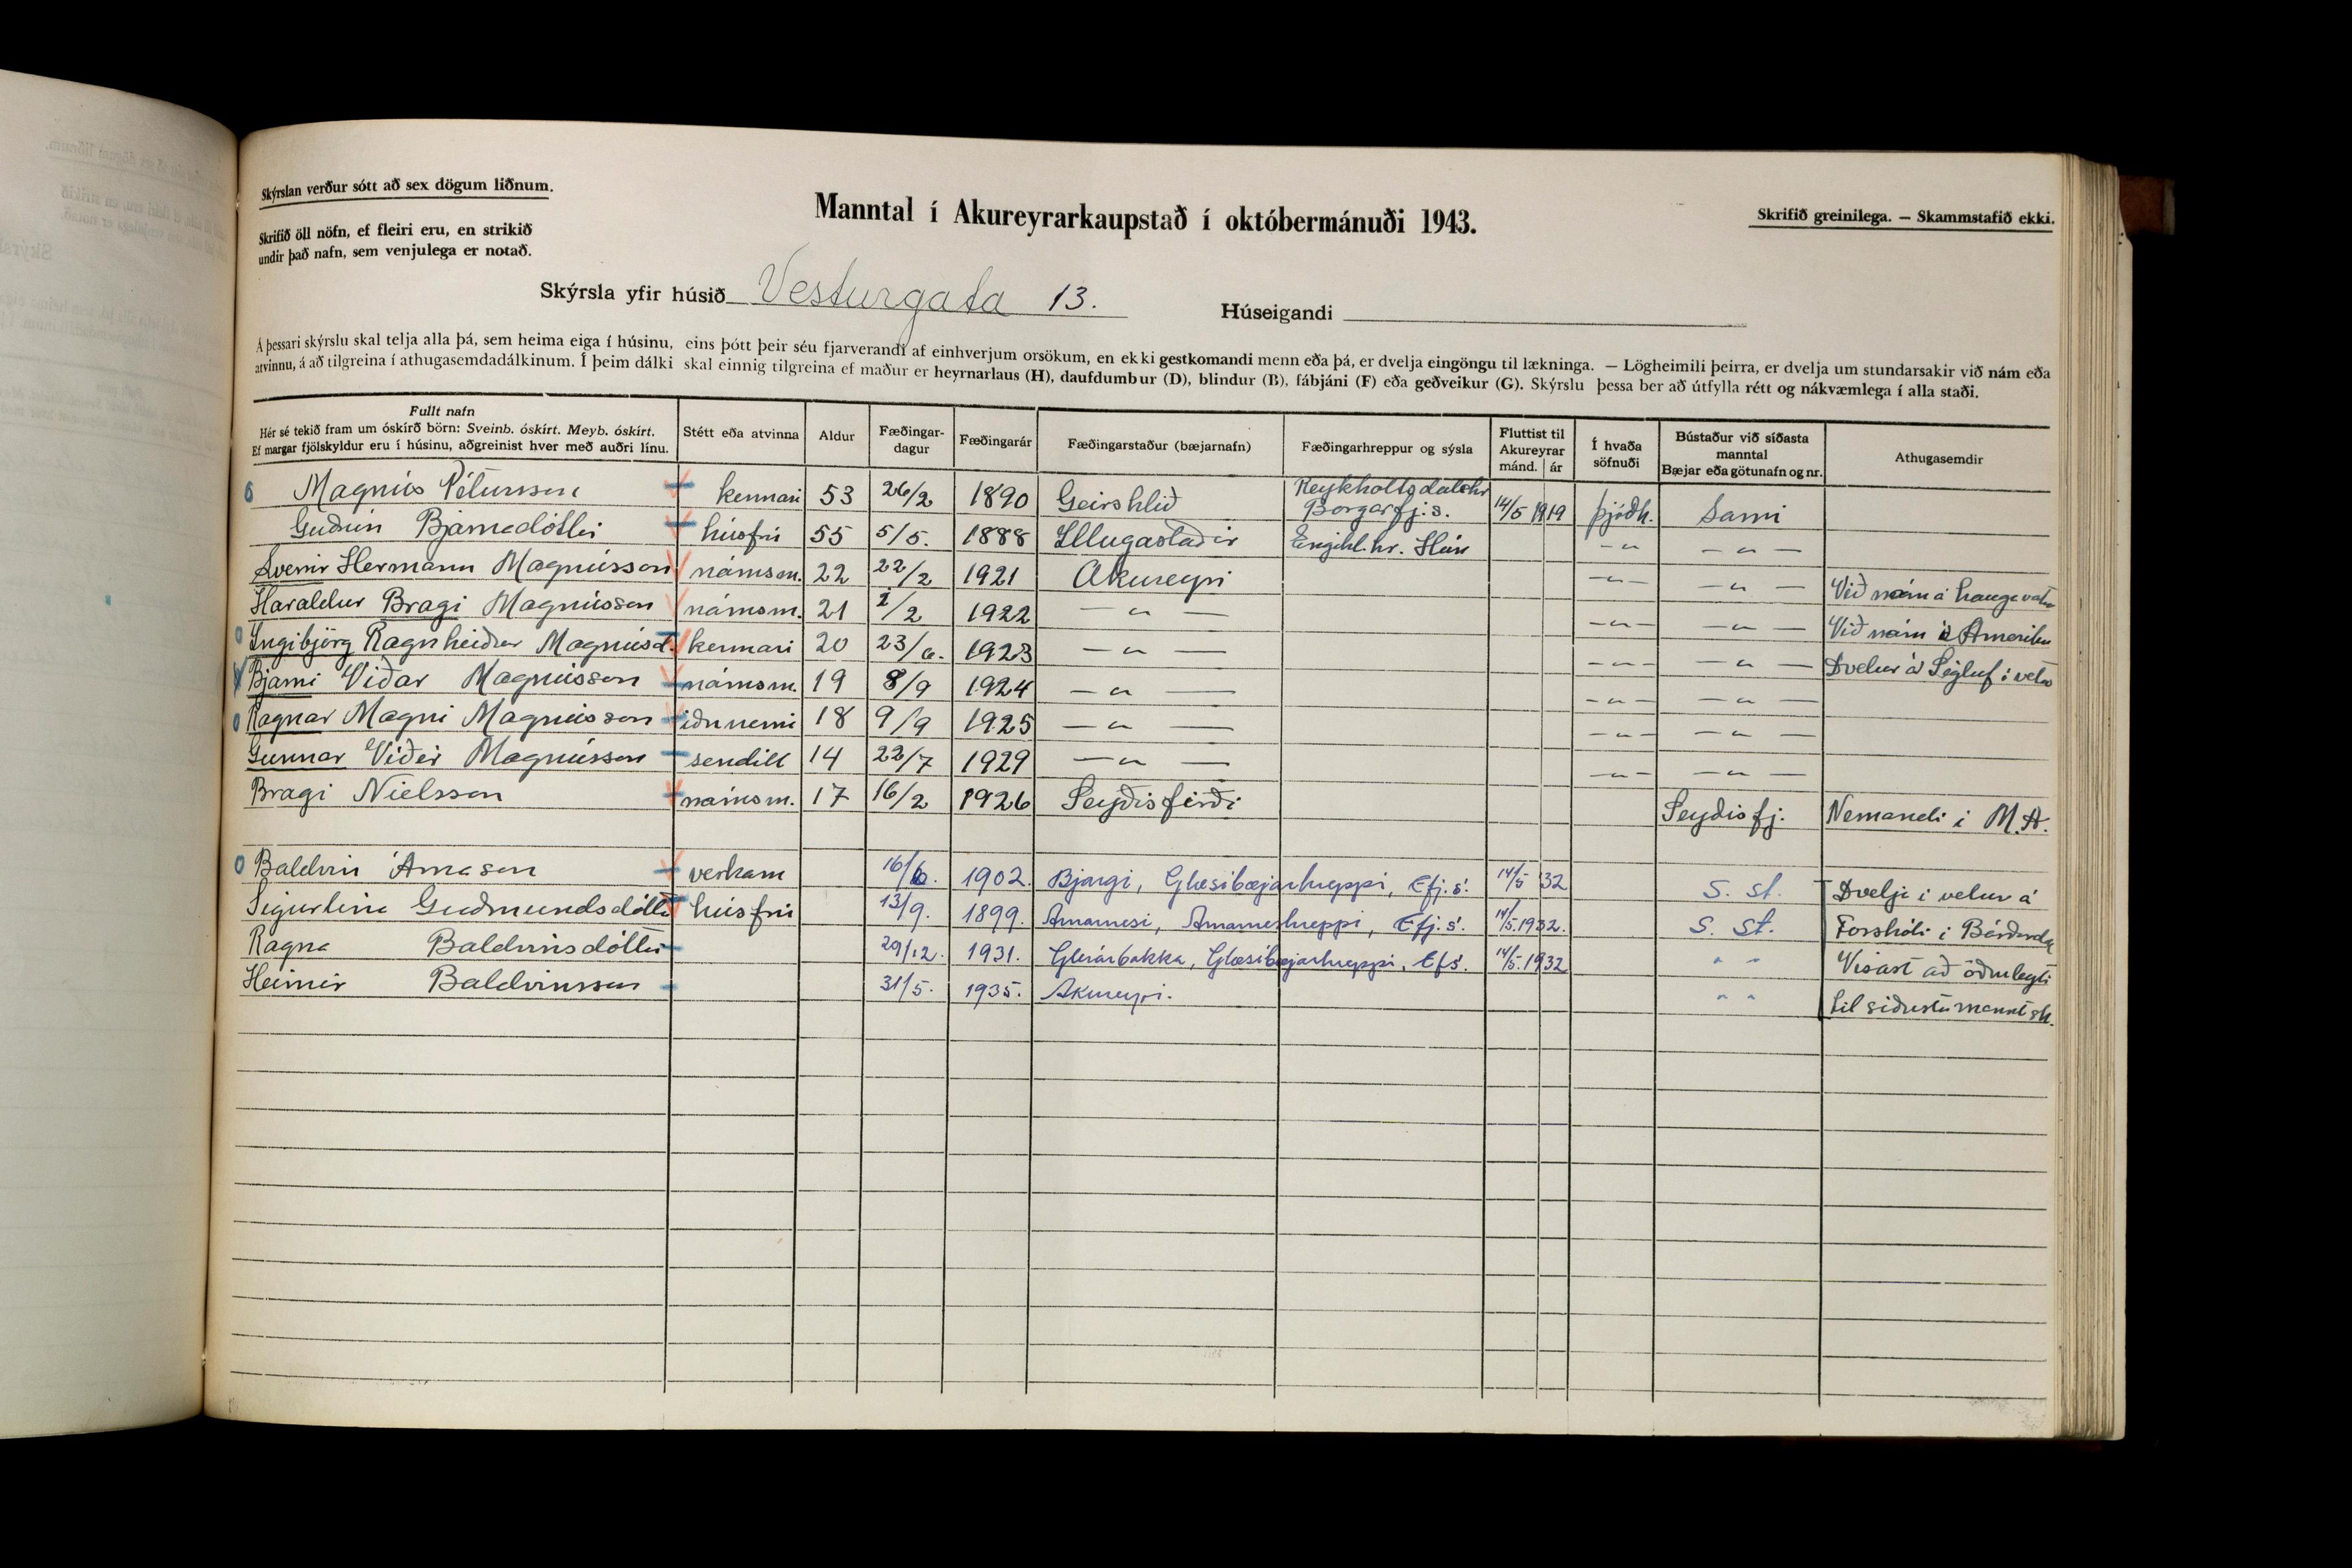 Skýrslan verður sótt að sex dögum liðnum.
Skrifið öll nöfn, ef fleiri eru, en strikið
undir það nafn, sem venjulega er notað.
Manntal í Akureyrarkaupstað í októbermánuði 1943.
Skrifið greinilega. — Skammstafið ekki.
Skýrsla yfir húsið Vesturgata 13.
Húseigandi
Á þessari skýrslu skal telja alla þá, sem heima eiga í húsinu, eins þótt þeir séu fjarverandi af einhverjum orsökum, en ekki gestkomandi menn eða þá, er dvelja eingöngu til lækninga. — Lögheimili þeirra, er dvelja um stundarsakir við nám eða
atvinnu, á að tilgreina í athugasemdadálkinum. Í þeim dálki skal einnig tilgreina ef maður er heyrnarlaus (H), daufdumbur (D), blindur (B), fábjáni (F) eða geðveikur (G). Skýrslu þessa ber að útfylla rétt og nákvæmlega í alla staði.
Fullt nafn
Hér sé tekið fram um óskírð börn: Sveinb. óskírt. Meyb. óskírt.
Ef margar fjölskyldur eru í húsinu, aðgreinist hver með auðri línu.
Stétt eða atvinna
Aldur
Fæðingar-
dagur
Fæðingarár
Fæðingarstaður (bæjarnafn)
Fæðingarhreppur og sýsla
Fluttist til
Akureyrar
mánd. ár
Í hvaða
söfnuði
Bústaður við síðasta
manntal
Bæjar eða götunafn og nr.
Athugasemdir
Magnús Pétursson kennari 53 26/2 1890 Geirshlíð Reykholtsdalshr Borgarfj.s. 14/5 1919 þjóðk. Sami
Guðrún Bjarnadóttir húsfrú 55 5/5. 1888 Illugastaðir Engihl.hr. Hún — " — — " —
Sverrir Hermann Magnússon námsm. 22 22/2 1921 Akureyri — " — — " — Við nám á Laugavatn
Haraldur Bragi Magnússon námsm. 21 1/2 1922 — " — — " — — " — Við nám í Ameríku
Ingibjörg Ragnheiður Magnúsd. kennari 20 23/6. 1923 — " — — " — — " — Dvelur á Sigluf. í vetur
Bjarni Viðar Magnússon námsm. 19 8/9 1924 — " — — " — — " —
Ragnar Magni Magnússon iðnnemi 18 9/9 1925 — " — — " — — " —
Gunnar Víðir Magnússon sendill 14 22/7 1929 — " — — " — — " —
Bragi Níelsson námsm. 17 16/2 1926 Seyðisfirði Seyðisfj. Nemandi í M.A.
Baldvin Árnason verkam 16/6. 1902. Bjargi, Glæsibæjarhreppi, Efj.s. 14/5 32 S. st. Dvelja í vetur á
Sigurlína Guðmundsdóttir húsfrú 13/9. 1899. Arnarnesi, Arnarneshreppi, Efj.s. 14/5.1932. S. St. Forshóli í Bárðardal
Ragna Baldvinsdóttir 29/12. 1931. Glerárbakka, Glæsibæjarhreppi, Efs. 14/5.1932 " " Vísast að öðruleyti
Heimir Baldvinsson 31/5. 1935. Akureyri. " " til síðustu manntsk.